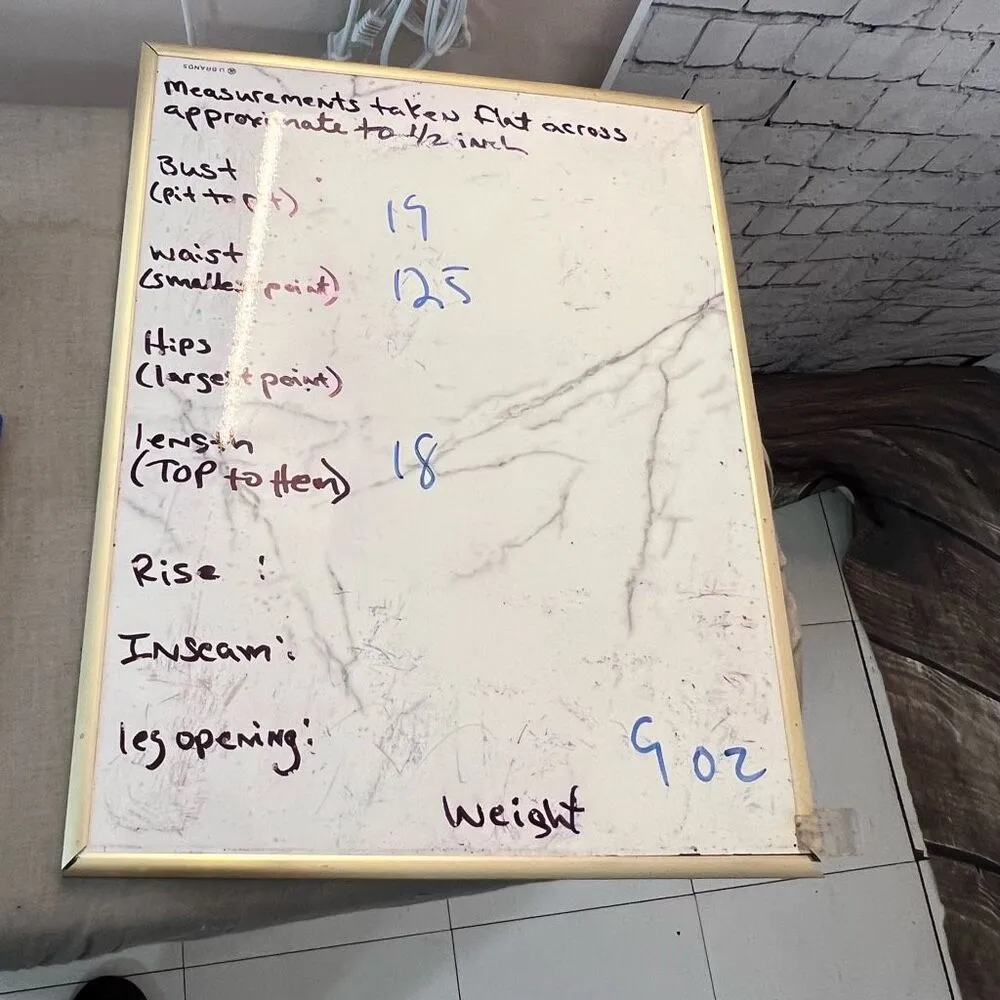 U BRANDS
measurements taken flat across
approximate to 1/2 inch
Bust :
(pit to pit)
19
waist
(smallest point)
125
Hips
(largest point)
length
(TOP to Hem)
18
Rise :
Inseam:
leg opening:
9 oz
Weight